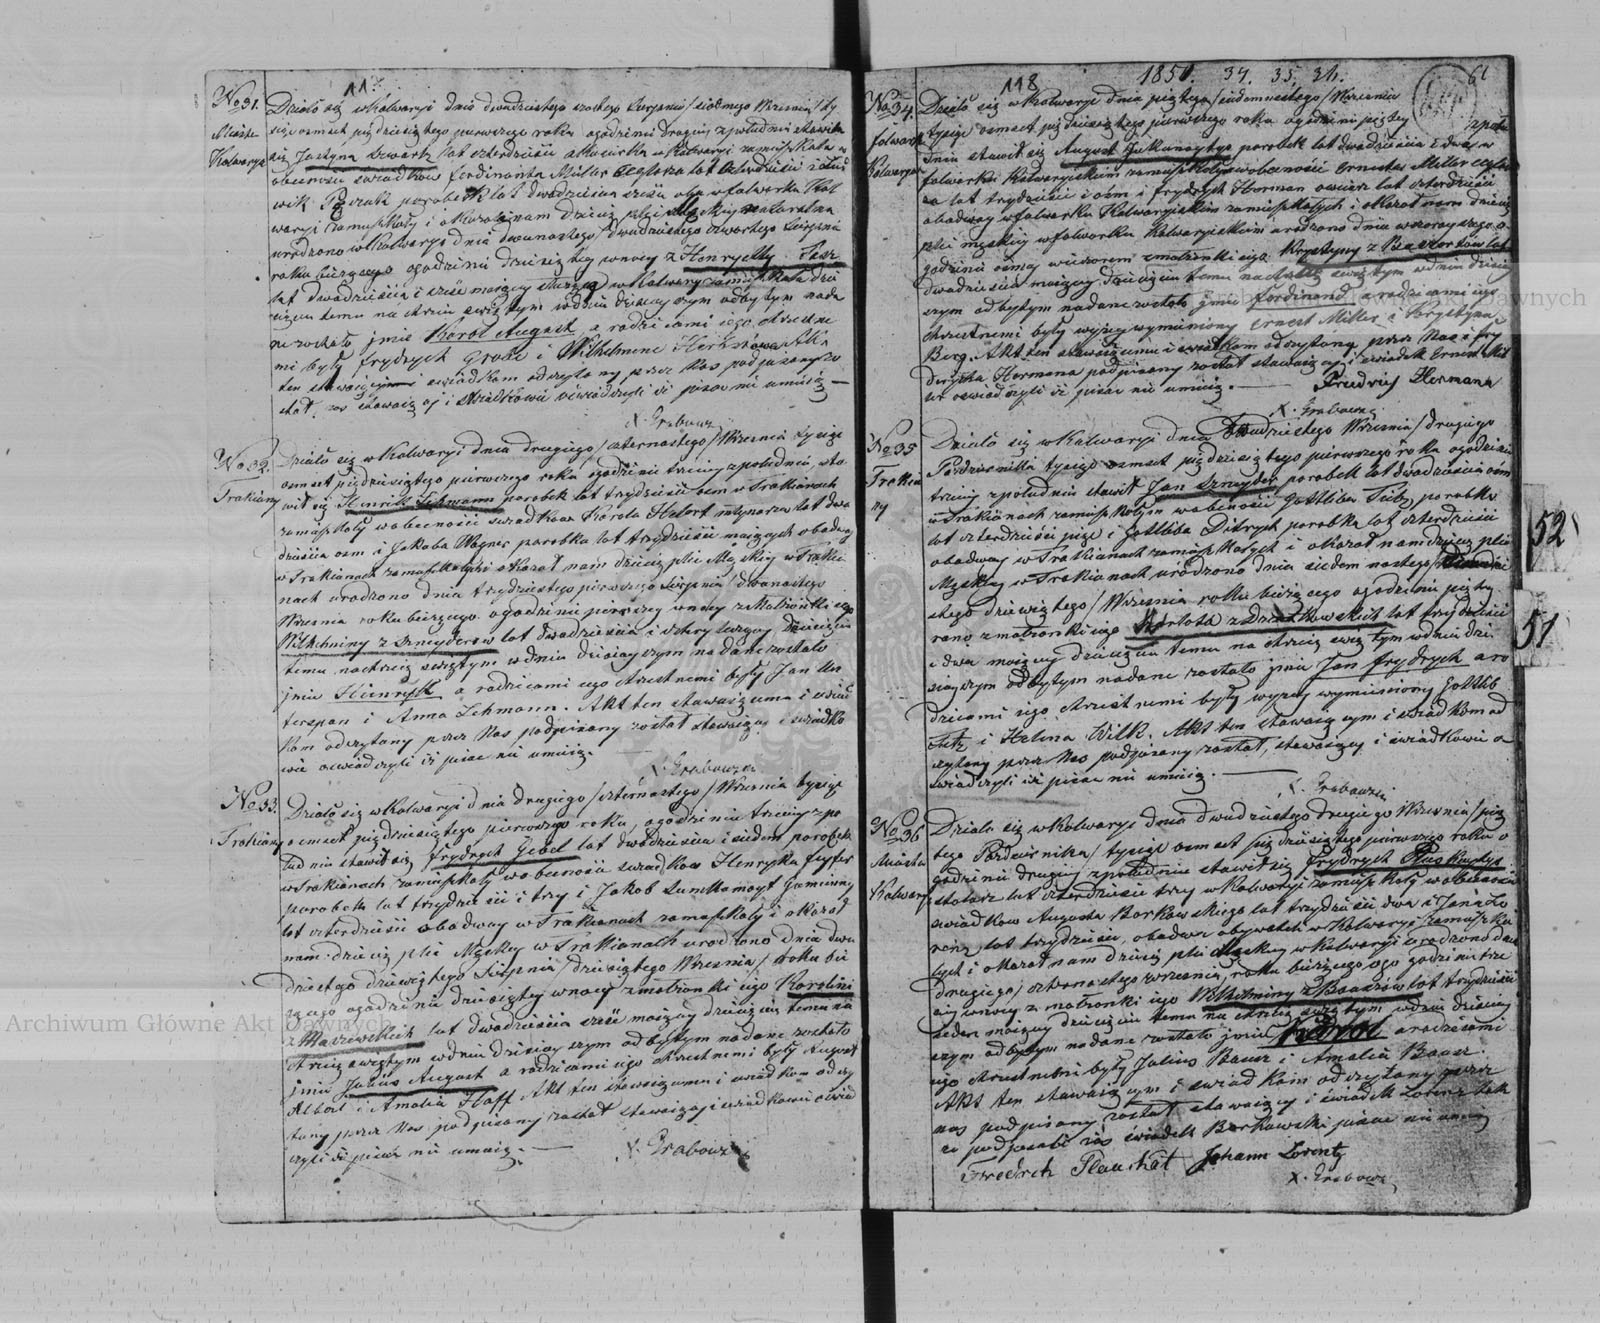 117
No 31.
Miasto
Kalwarya
Działo się w Kalwaryi dnia dwudziestego szóstego Sierpnia / siódmego Września / ty
siąc ośmset pięćdziesiątego pierwszego roku o godzinie drugiej z południa stawiła
się Justyna Szwartz lat czterdzieści akuszerka w Kalwaryi zamieszkała w
obecności świadków Ferdinanda Miller lat czterdzieści i
wik parobek lat dwadzieścia sześć oba w folwarku Kal
waryi zamieszkały i okazała nam dziecię płci męskiej
urodzone w Kalwaryi dnia dwunastego / dwudziestego czwartego Sierpnia
roku bieżącego o godzinie dziesiątej w nocy z Henryetty
lat dwadzieścia i sześć mającej służącej w Kalwaryi zamieszkałej dzie
cięciu temu na chrzcie świętym w dniu dzisiejszym odbytym nada
ne zostało imie Karol August a rodzicami jego chrzestne
mi byli Frydrych Grose i Wilhelmine Akt
ten stawającej i świadkom odczytany przez Nas podpisany zo
stał, zaś stawająca i świadkowie oświadczyli iż pisać nie umieją —
X. Grabows
No 32.
Trakiany
Działo się w Kalwaryi dnia drugiego / czternastego / Września tysiąc
ośmset pięćdziesiątego pierwszego roku o godzinie trzeciej z południa, sta
wił się Henrik Lehmann parobek lat trzydzieści ośm w Trakianach
zamieszkały w obecności świadków Karola Habert młynarza lat dwa
dzieścia ośm i Jakoba Wagner parobka lat trzydzieści mających obadwaj
w Trakianach zamieszkałych i okazał nam dziecię płci Męskiej w Trakia
nach urodzone dnia trzydziestego pierwszego Sierpnia / dwunastego
Września roku bieżącego o godzinie pierwszej w nocy z Małżonki jego
Wilhelminy z Sznyderów lat dwadzieścia i cztery mającej dziecięciu
temu na chrzcie świętym w dniu dzisiejszym nadane zostało
imie Heinrych a rodzicami jego chrzestnemi byli Jan Un
terspan i Anna Lehmann. Akt ten stawającemu i świad
kom odczytany przez Nas podpisany został stawający i świadko
wie oświadczyli iż pisać nie umieją.
X. Grabows
No 33.
Trakiany
Działo się w Kalwaryi dnia drugiego / czternastego / Września tysiąc
ośmset pięćdziesiątego pierwszego roku, o godzinie trzeciej z po
łudnia stawił się Frydrych Gebel lat dwadzieścia i siedem parobek
w Trakianach zamieszkały w obecności świadków Henryka Feyfer
parobka lat trzydzieści i trzy i Jakob gminny
lat czterdzieści obadwaj w Trakianach zamieszkały i okazał
nam dziecię płci Męskiej w Trakianach urodzone dnia dwu
dziestego dziewiątego Sierpnia / dziesiątego Września / roku bie
żącego o godzinie dziesiątej w nocy z małżonki jego Karolini
z Maszewskich lat dwadzieścia sześć mającej dziecięciu temu na
chrzcie świętym w dniu dzisiejszym odbytym nadane zostało
imie Julius August a rodzicami jego chrzestnemi byli August
Albert i Amalia Haff Akt ten stawającemu i świadkom odczy
tany przez Nas podpisany został stawający i świadkowie oświad
czyli iż pisać nie umieją. —
X. Grabows
118
1851. 34. 35. 36.
61
No 34.
folwark
Kalwarya
Działo się w Kalwaryi dnia piątego / siedemnastego / Września
tysiąc ośmset pięćdziesiątego pierwszego roku o godzinie piątej z połu
dnia stawił się August Jakunaytys parobek lat dwadzieścia i dwa w
folwarku Kalwaryjskim zamieszkały w obecności Ernesta Miller
lat trzydzieści i ośm i Frydrych Herman owczarz lat czterdzieści
obadwaj w folwarku Kalwaryjskim zamieszkałych i okazał nam dziecię
płci męskiej w folwarku Kalwaryjskim urodzone dnia wczorajszego o
godzinie ósmej wieczorem z małżonki jego Krystyny z lat
dwadzieścia mającej dziecięciu temu na chrzcie świętym w dniu dzisiej
szym odbytym nadane zostało imie Ferdinand, a rodzicami jego
chrzestnemi byli wyżej wymieniony Ernest Miller i Krystyna
Berg. Akt ten stawającemu i świadkom odczytany przez Nas i Fry
drycha Hermana podpisany został stawający i świadek Ernest Mil
ler oświadczyli iż pisać nie umieją. —
Friedrich Hermann
X. Grabows
No 35
Trakia
ny
Działo się w Kalwaryi dnia Dwudziestego Września / drugiego
Października tysiąc ośmset pięćdziesiątego pierwszego roku o godzinie
trzeciej z południa stawił Jan Sznyder parobek lat dwadzieścia ośm
w Trakianach zamieszkały w obecności Gottliba Titz parobka
lat czterdzieści pięć i Gottliba Ditrych parobka lat czterdzieści
obadwaj w Trakianach zamieszkałych i okazał nam dziecię płci
Męskiej w Trakianach urodzone dnia siedemnastego
stego dziewiątego / Września roku bieżącego o godzinie piątej
rano z małżonki jego Karlota z lat trzydzieści
i dwa mającej dziecięciu temu na chrzcie świętym w dniu dzi
siejszym odbytym nadane zostało imie Jan Frydrych a ro
dzicami jego chrzestnemi byli wyżej wymieniony Gottlib
Titz i Helena Wilk. Akt ten stawającym i świadkom od
czytany przez Nas podpisany został, stawający i świadkowie o
świadczyli iż pisać nie umieją. —
X. Grabows
No 36
Miasto
Kalwarya
Działo się w Kalwaryi dnia dwudziestego drugiego Września / czwar
tego Października / tysiąc ośmset pięćdziesiątego pierwszego roku o
godzinie drugiej z południa stawił się Frydrych
stolarz lat czterdzieści trzy w Kalwaryi zamieszkały w obecności
świadków Augusta Borkowskiego lat trzydzieści dwa i Jana Lo
renz lat trzydzieści, obadwa obywateli w Kalwaryi zamieszka
łych i okazał nam dziecię płci Męskiej w Kalwaryi urodzone dnia
drugiego / czternastego Września, roku bieżącego o godzinie trze
ciej w nocy z małżonki jego Wilhelminy z Bauzów lat trzydzieści
jeden mającej dziecięciu temu na chrzcie świętym w dniu dzisiej
szym odbytym nadane zostało imie Karol a rodzicami
jego chrzestnemi byli Julius Bauz i Amalia Bauz.
Akt ten stawającym i świadkom odczytany przez
nas podpisany został stawający i świadek Lorenz tak
że podpisali zaś świadek Borkowski pisać nie umie
Friedrich Plauschat Johann Lorentz
X. Grabows
52
51
Archiwum Główne Akt Dawnych
Archiwum Główne Akt Dawnych